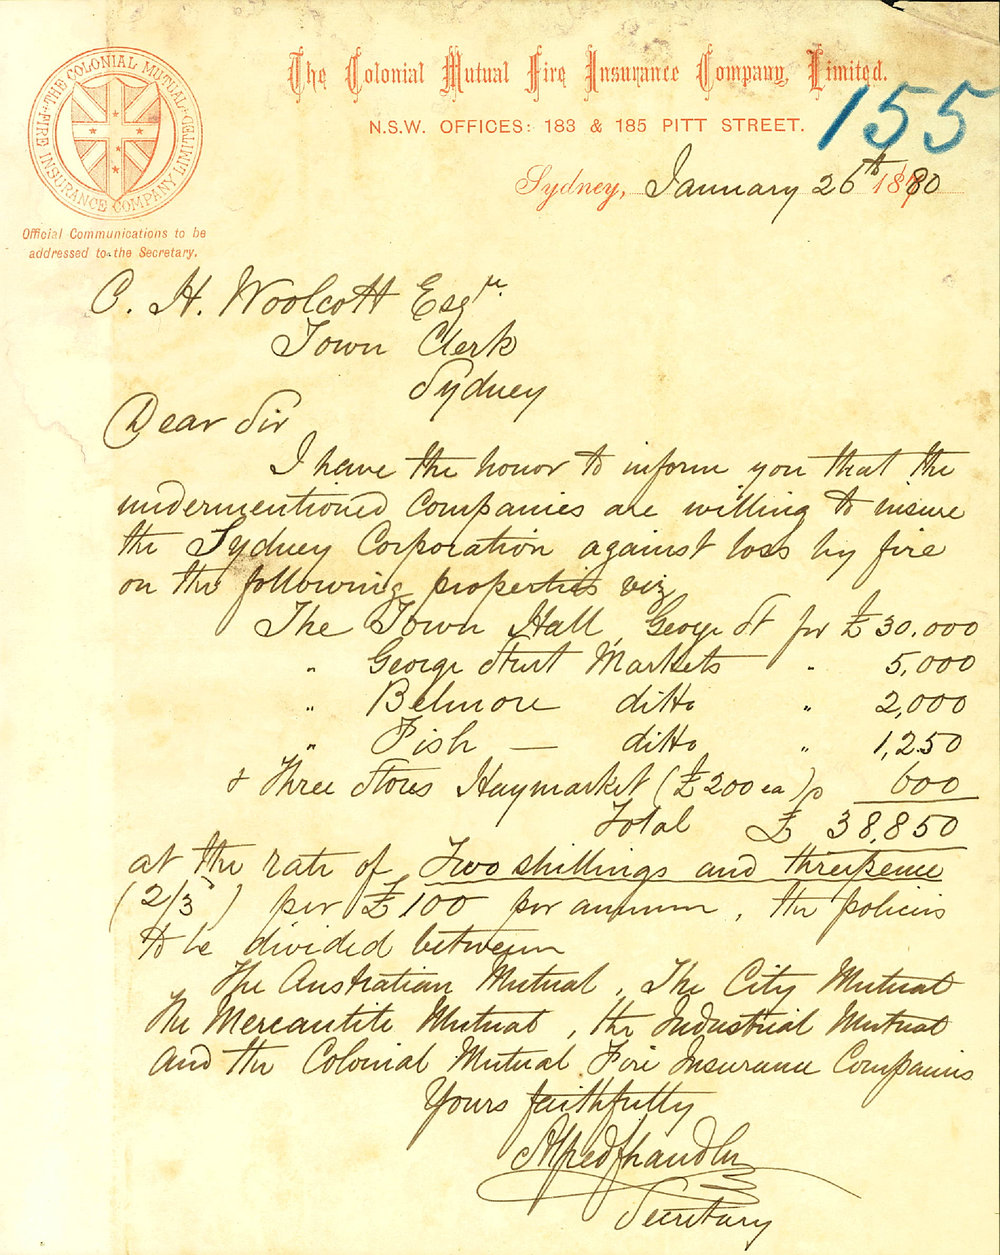 THE COLONIAL MUTUAL FIRE INSURANCE COMPANY LIMITED
The Colonial Mutual Fire Insurance Company, Limited.
N.S.W. OFFICES: 183 & 185 PITT STREET.
155
Sydney, January 26th 1880
Official Communications to be
addressed to the Secretary.
C. H. Woolcott Esqre.
Town Clerk
Sydney
Dear Sir
I have the honor to inform you that the
undermentioned Companies are willing to insure
the Sydney Corporation against loss by fire
on the following properties viz
The Town Hall, George St for £30,000
" George Street Markets " 5,000
" Belmore ditto " 2,000
" Fish — ditto " 1,250
& Three Stores Haymarket (£200 ea) 600
Total £ 38,850
at the rate of Two shillings and threepence
(2/3) per £100 per annum, the policies
to be divided between
The Australian Mutual, The City Mutual
The Mercantile Mutual, the Industrial Mutual
and the Colonial Mutual Fire Insurance Companies
Yours faithfully
Alfred Chandler
Secretary